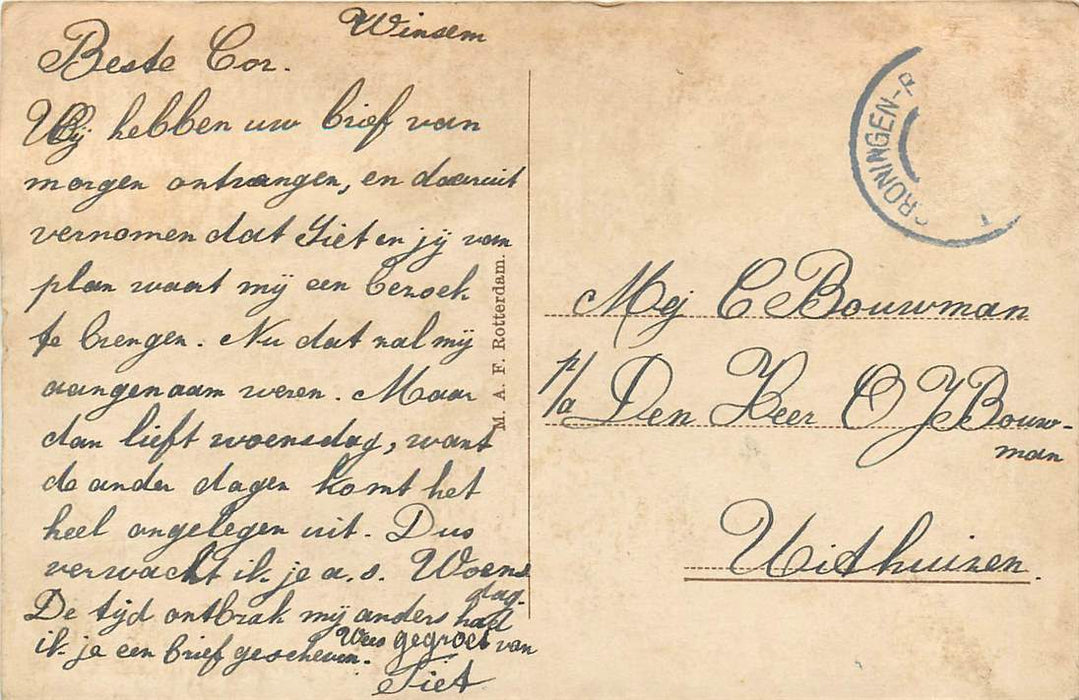 Winsem
Beste Cor.
Wij hebben uw brief van
morgen ontvangen, en daaruit
vernomen dat Siet en jij van
plan waart mij een bezoek
te brengen. Nu dat zal mij
aangenaam wezen. Maar
dan lieft woensdag, want
de ander dagen komt het
heel ongelegen uit. Dus
verwacht ik je a.s. Woens
dag.
De tijd ontbrak mij anders had
ik je een brief gescheven.
Wees gegroet van
Siet
M. A. F. Rotterdam.
GRONINGEN-
Mej C Bouwman
p/a Den Heer O J Bouw-
man
Uithuizen.